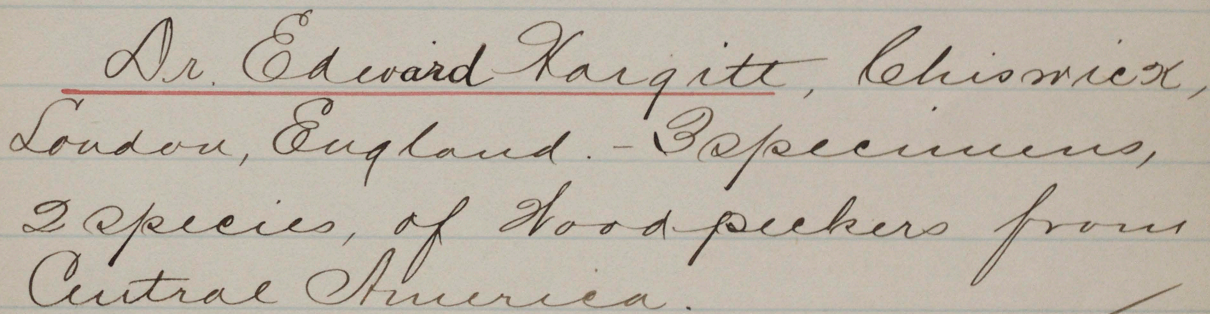 Dr. Edward Hargitt, Chiswick,
London, England. - 3 specimens,
2 species, of Woodpeckers from
Central America.